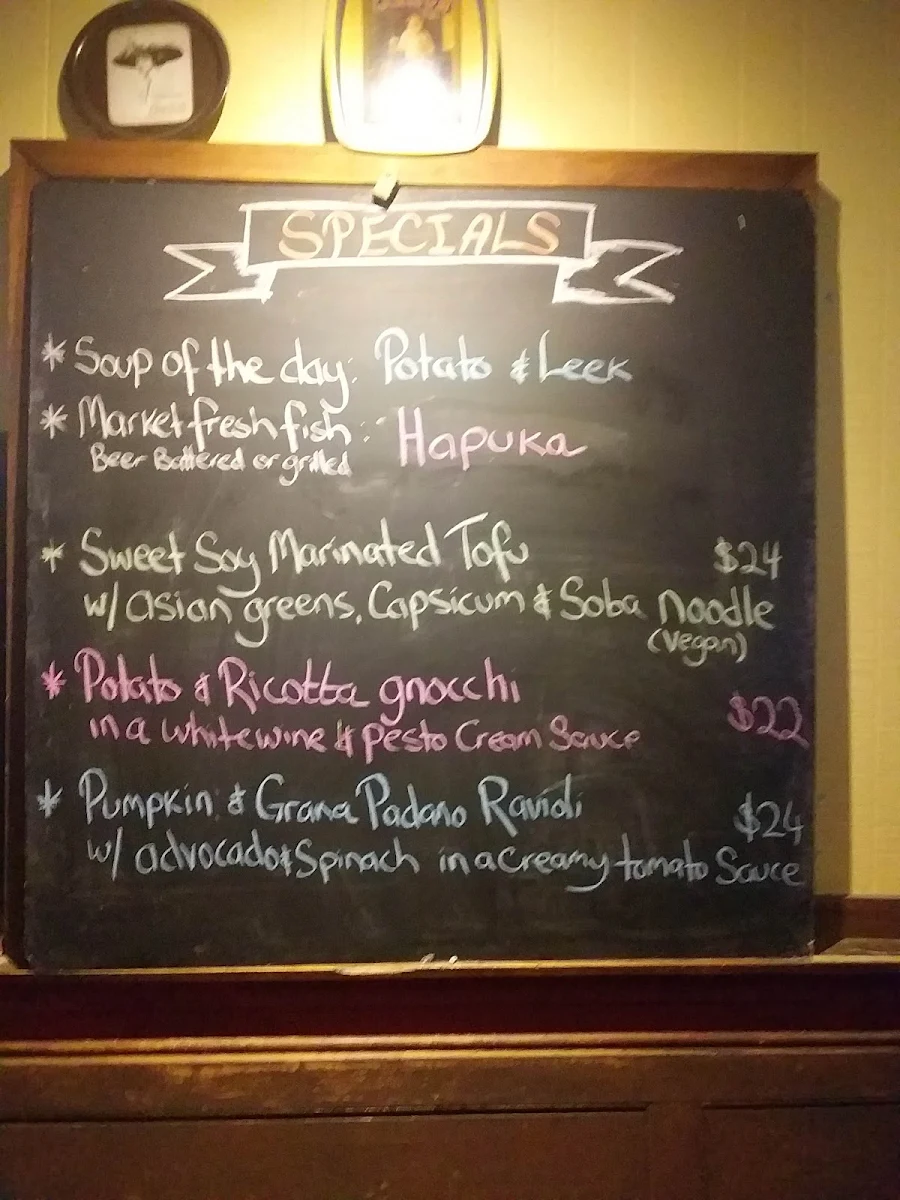 SPECIALS
* Soup of the day: Potato & Leek
* Market fresh fish: Hapuka
Beer Battered or grilled
* Sweet Soy Marinated Tofu $24
w/ asian greens, Capsicum & Soba noodle
(Vegan)
* Potato & Ricotta gnocchi
in a whitewine & pesto Cream Sauce $22
* Pumpkin & Grana Padano Ravioli $24
w/ advocado & Spinach in a creamy tomato Sauce